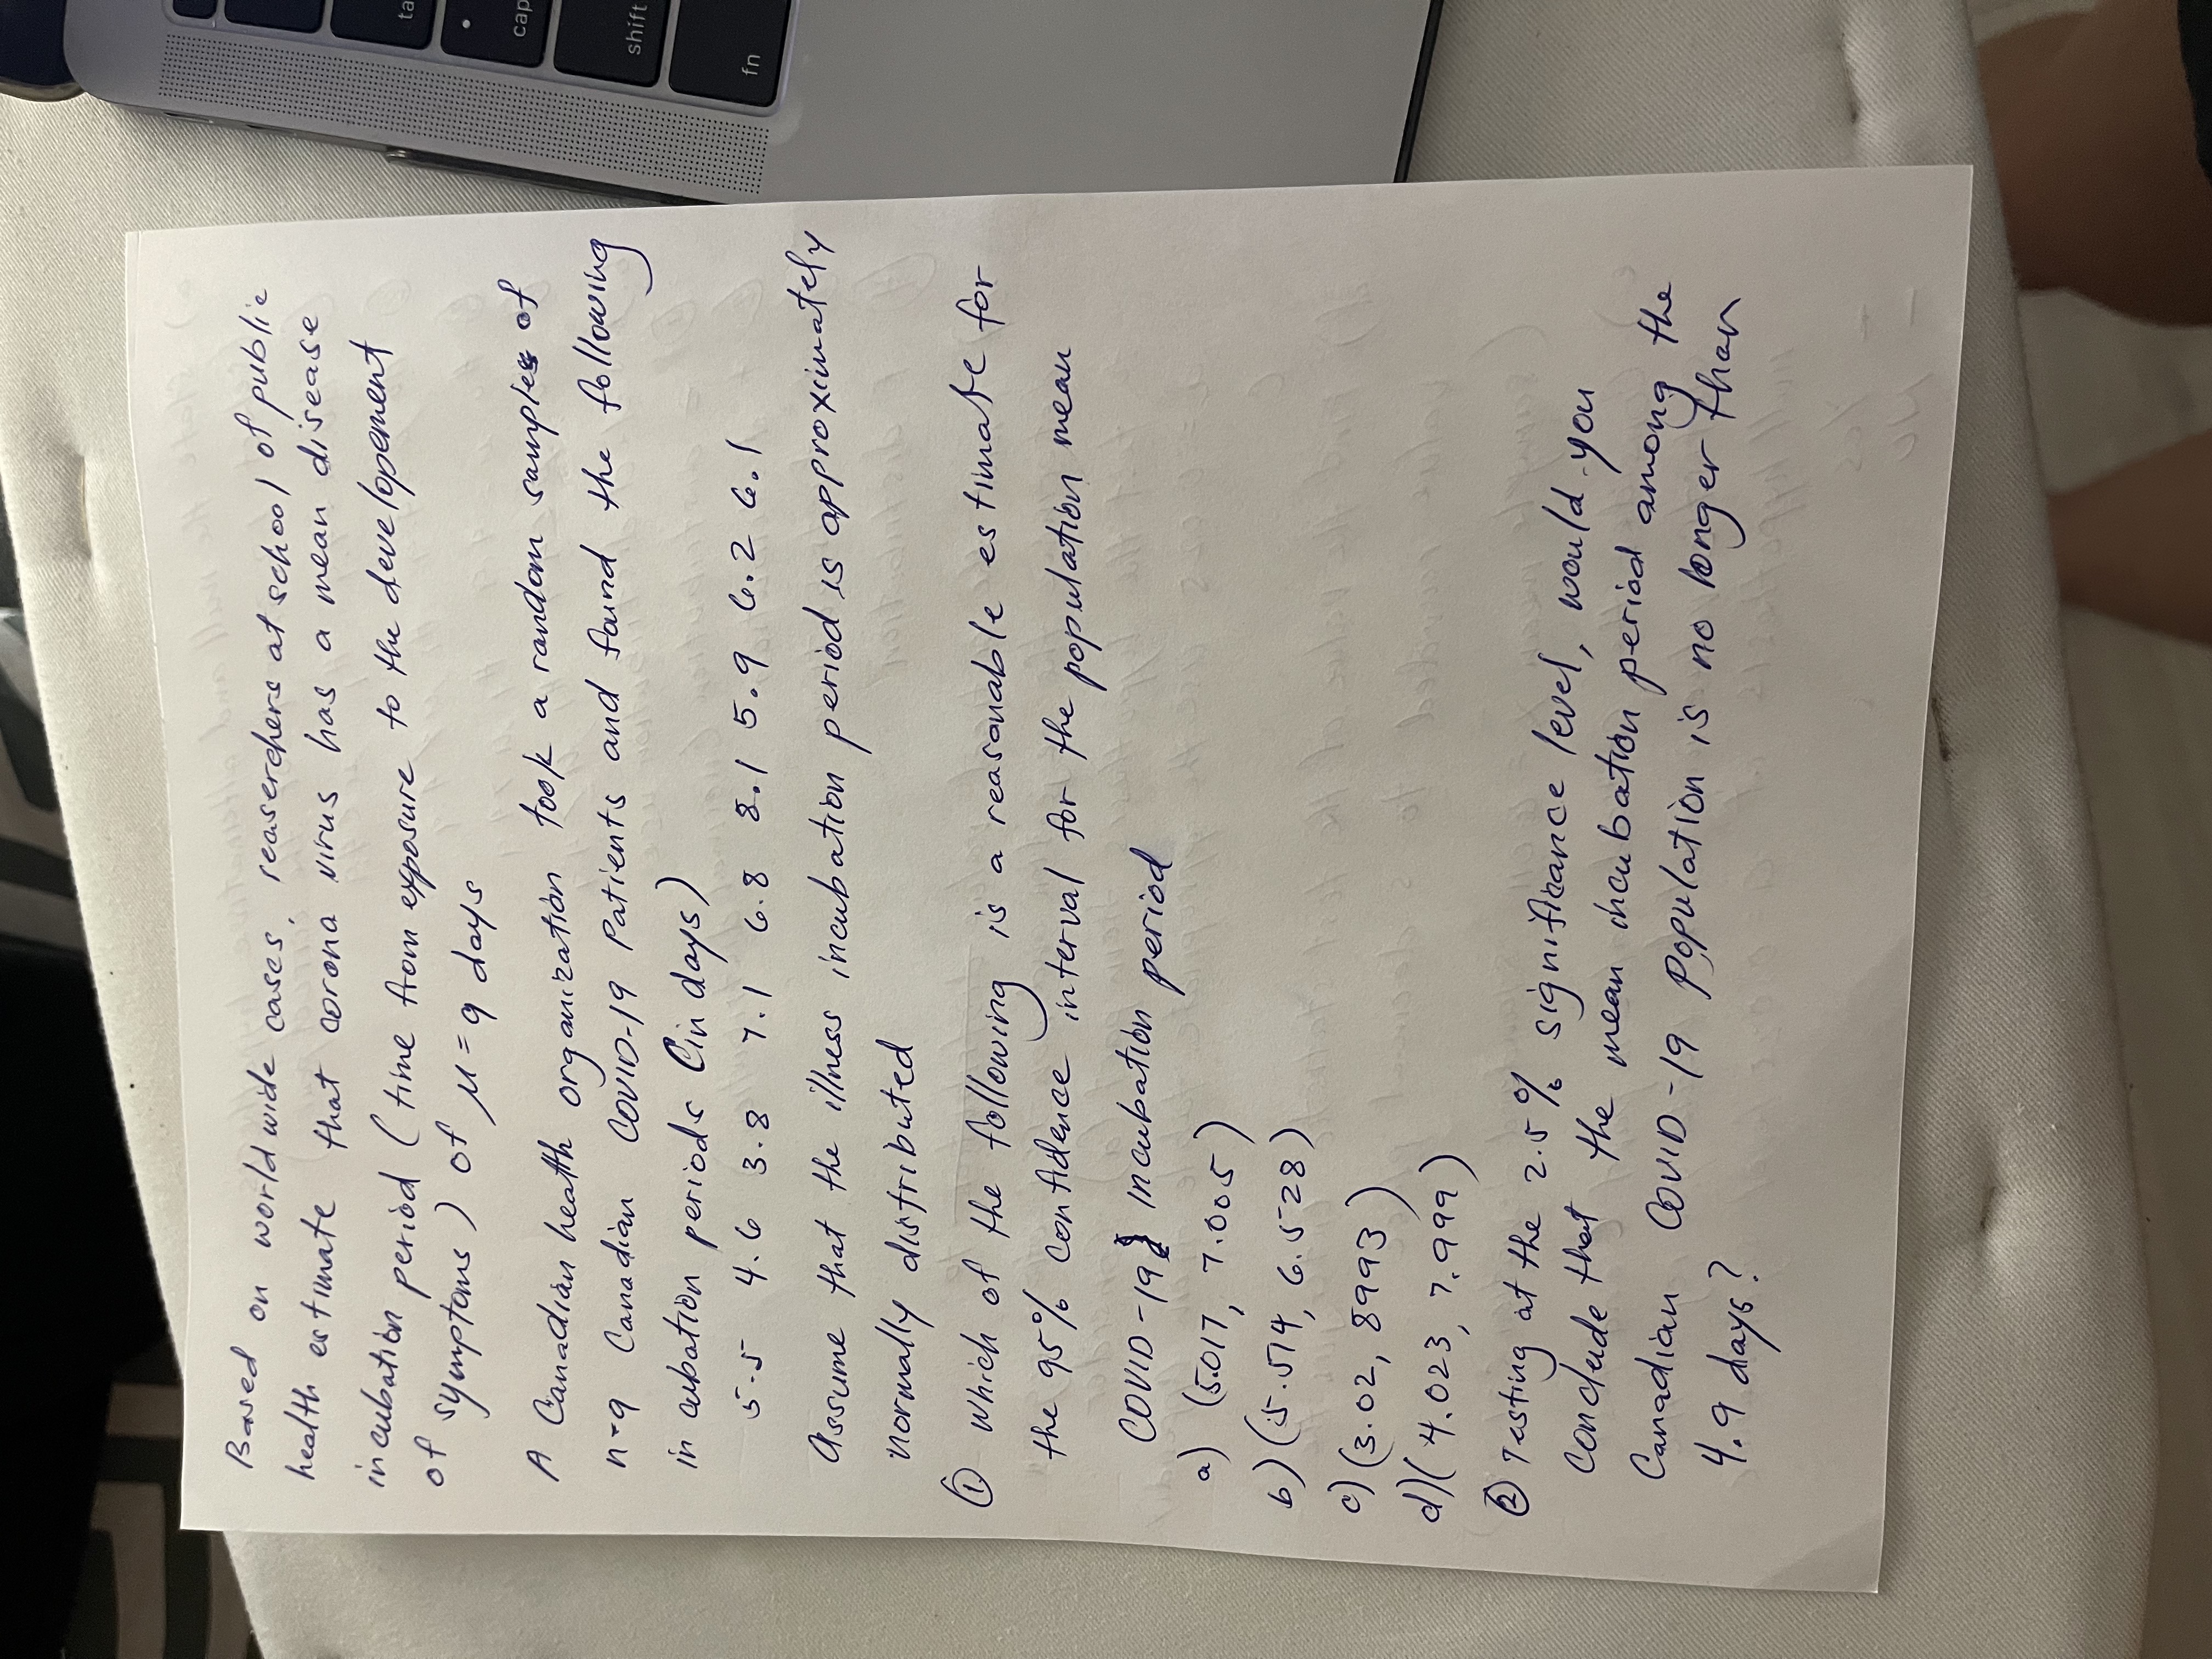 Based on world wide cases, reaserchers at school of public
health estimate that corona virus has a mean disease
incubation period ( time from exposure to the developement
of symptoms ) of μ = 9 days
A Canadian heath organization took a random samples of
n=9 Canadian COVID-19 Patients and found the following
incubation periods (in days)
5.5 4.6 3.8 7.1 6.8 8.1 5.9 6.2 6.1
Assume that the illness incubation period is approximately
normally distributed
① which of the following is a reasonable estimate for
the 95% confidence interval for the population mean
COVID-19 incubation period
a) (5.017, 7.005)
b) (5.514, 6.528)
c) (3.02, 8993)
d) (4.023, 7.999)
② Testing at the 2.5% significance level, would you
conclude that the mean incubation period among the
Canadian COVID-19 population is no longer than
4.9 days?
ta
cap
shift
fn